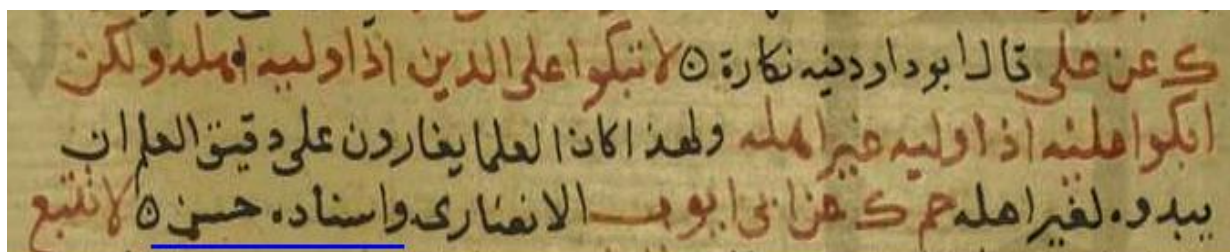 ك عن علي قال ابو داود فيه نكارة ۞ لا تبكوا على الدين اذا وليه اهله ولكن
ابكوا عليه اذا وليه غير اهله ولهذا كان العلما يغارون على دقيق العلم ان
يبدوه لغير اهله حم ك عن ابي ايوب الانصاري واسناده حسن ۞ لا تتبع